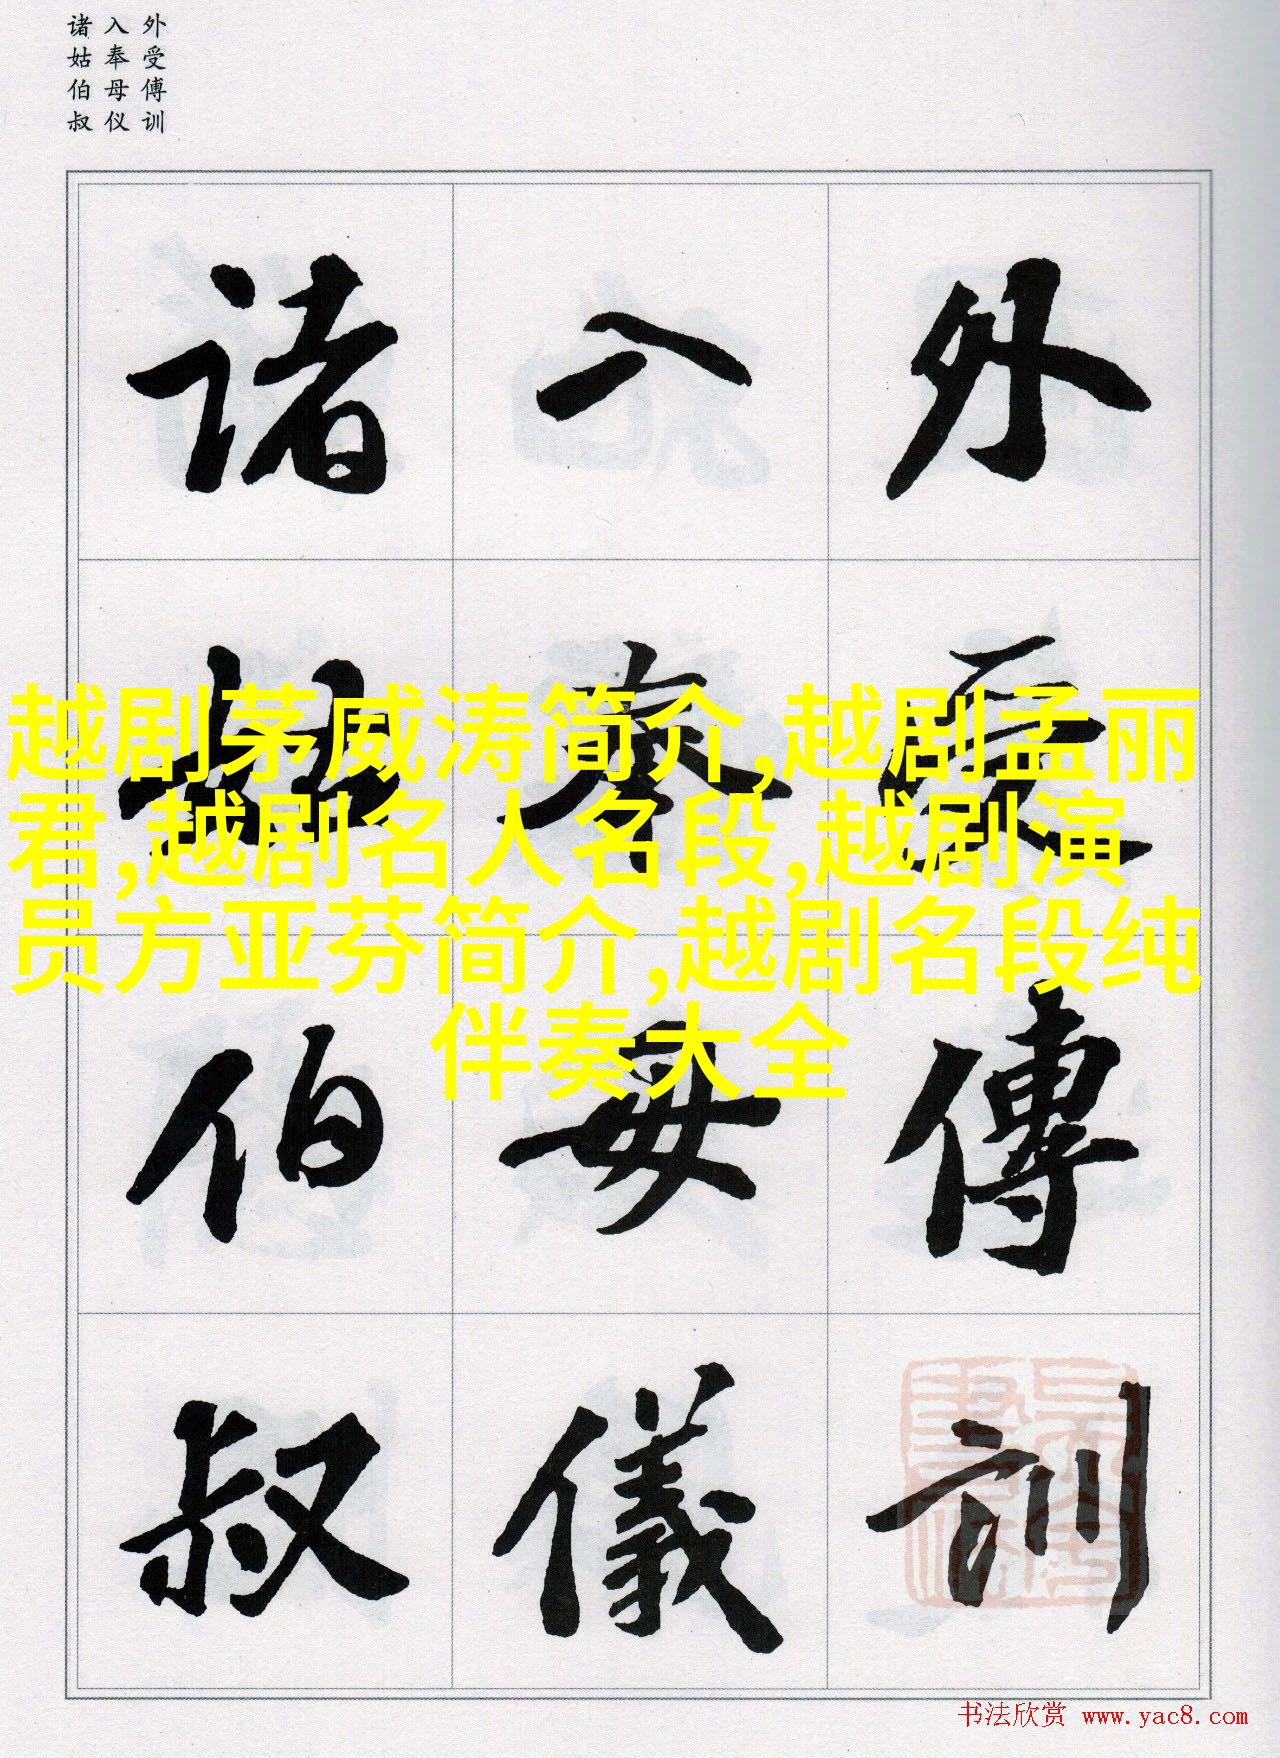 诸入外
姑奉受
伯母傅
叔仪训
诸入外
姑奉受
伯母傅
叔儀訓
越剧茅威涛简介,越剧孟丽
君,越剧名人名段,越剧演
员方亚芬简介,越剧名段纯
伴奏大全
书法欣赏 www.yac8.com